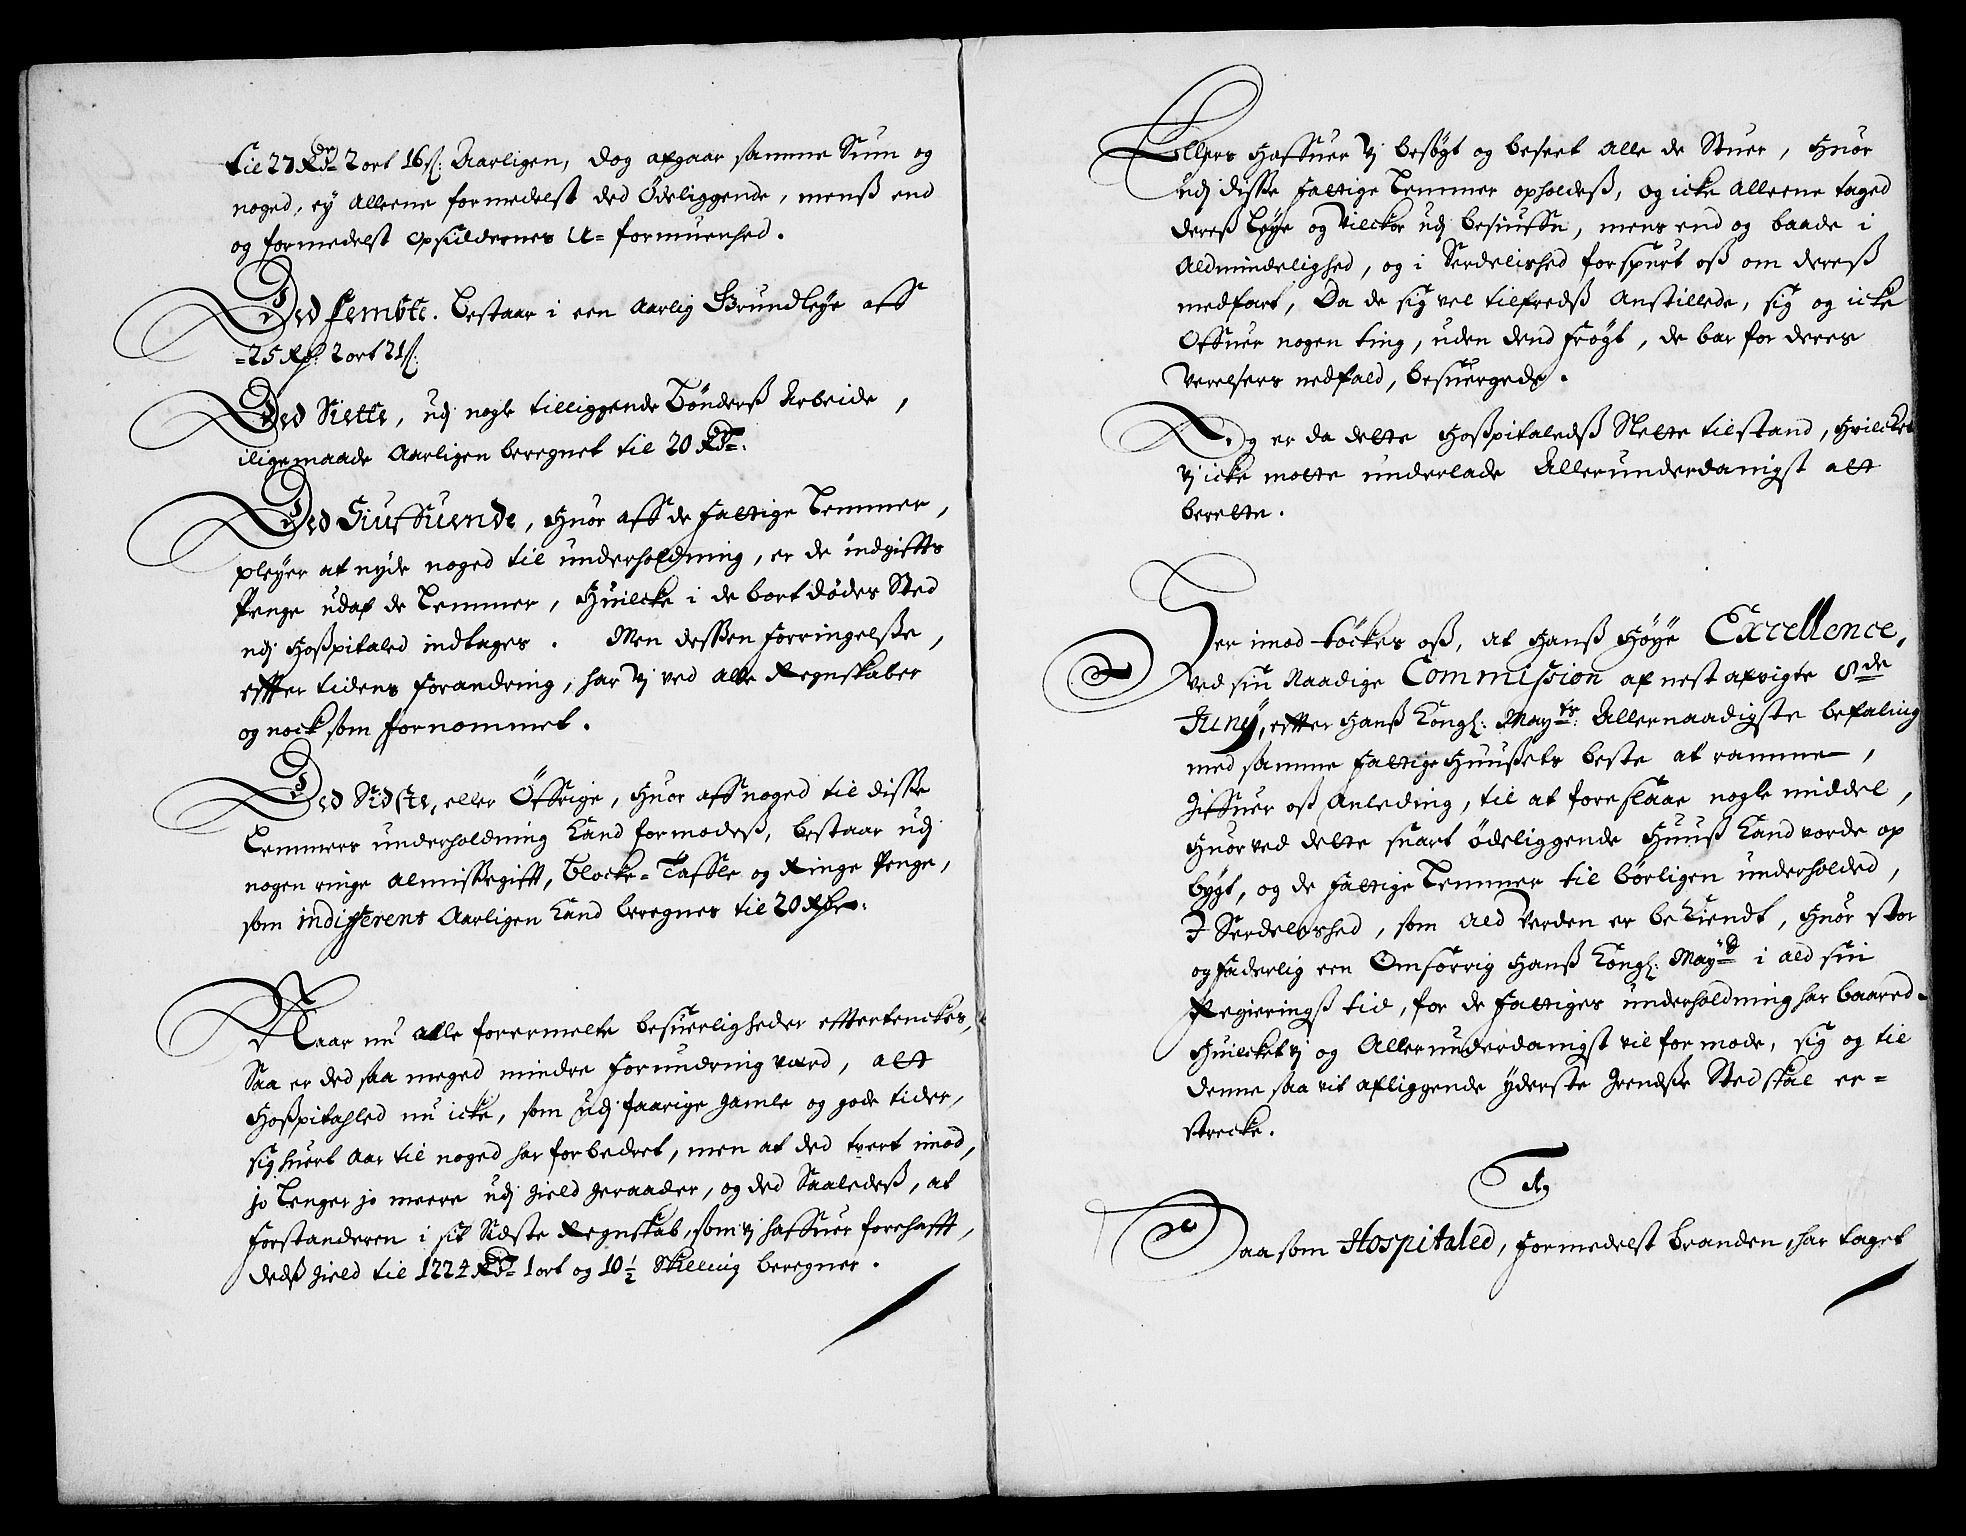 til 27 Rdr 2 ort 16 s: Aarligen, dog afgaar samme Sum og
noged, ey alleene formedelst ded Ödeliggende, menß end
og formedelst opsiddernes U=formuenhed.
Ded Fembte. bestaar i een Aarlig Grundleye aff
=25 Rd: 2 ort 21 s:
Ded Siette, udj nogle tilliggende Bönderß Arbeide,
iligemaade Aarligen beregnet til 20 Rdr:
Ded Siuffuende, huor aff de fattige Lemmer,
pleyer at nyde noged til underholdning, er de indgiffts
Penge udaf de Lemmer, huilcke i de bortdödes Sted
udj Hoßpitaled indtages. Men dessen forringelsse,
effter tidens forandring, har vj ved alle Regnskaber
og nock som fornommet.
Ded Sidste, eller Öffrige, huor aff noged til disse
Lemmers underholdning kand formodeß, bestaar udj
nogen ringe almissegifft, Blocke=Taffle og Ringe Penge,
som indifferent Aarligen kand beregnes til 20 Rdr:
Naar nu alle forermelte besuerligheder efftertenckes,
Saa er ded saa meged mindre forundring værd, att
Hoßpitahled nu icke, som udj faarige gamle og gode tider,
sig huert Aar til noged har forbedret, men at ded tvert imod,
jo Lenger jo meere udj gield geraader, og ded Saaledeß, at
forstanderen i sit Sidste Regnskab, som vj haffuer forehafft,
dedß gield til 1224 Rdr 1 ort og 10 1/2 Skilling beregner.
Ellers haffuer vj besögt og beseet alle de Stuer, huor
udj disse fattige Lemmer opholdeß, og icke alleene taged
dereß Leye og Vilckor udj besiufn, mens end og baade i
Aldmindelighed, og i Serdelished forspurt oß om dereß
medfart, Da de sig vel tilfredß anstillede, sig og icke
offuer nogen ting, uden dend frögt, de bar for deres
Verelsers nedfald, besuergede.
Og er da dette Hoßpitaledß Slette tilstand, huilcket
vj icke motte underlade Allerunderdanigst att
berette.
Her imod töckes oß, at hanß Höye Excellence,
ved sin Naadige Commission af nest afvigte 8de
Junij, effter hanß Kongl: Mayts: Allernaadigste befaling
med samme fattige Huußets beste at ramme,
giffuer oß Anleding, til at foreslaae nogle middel,
huorved dette snart ödeliggende Huuß kand vorde op
bygt, og de fattige Lemmer til börligen underholded,
I Serdelished, som ald Verden er bekiendt, huor stor
og faderlig een Omsorrig hanß Kongl: Mayt i ald sin
Regieringß tid, for de fattiges underholdning har baared.
Huilcket vj og Allerunderdanigst vil formode, sig og til
denne saa vit afliggende yderste grendse Sted skal er=
strecke.
Og
Saasom Hospitaled, formedelst branden, har taget